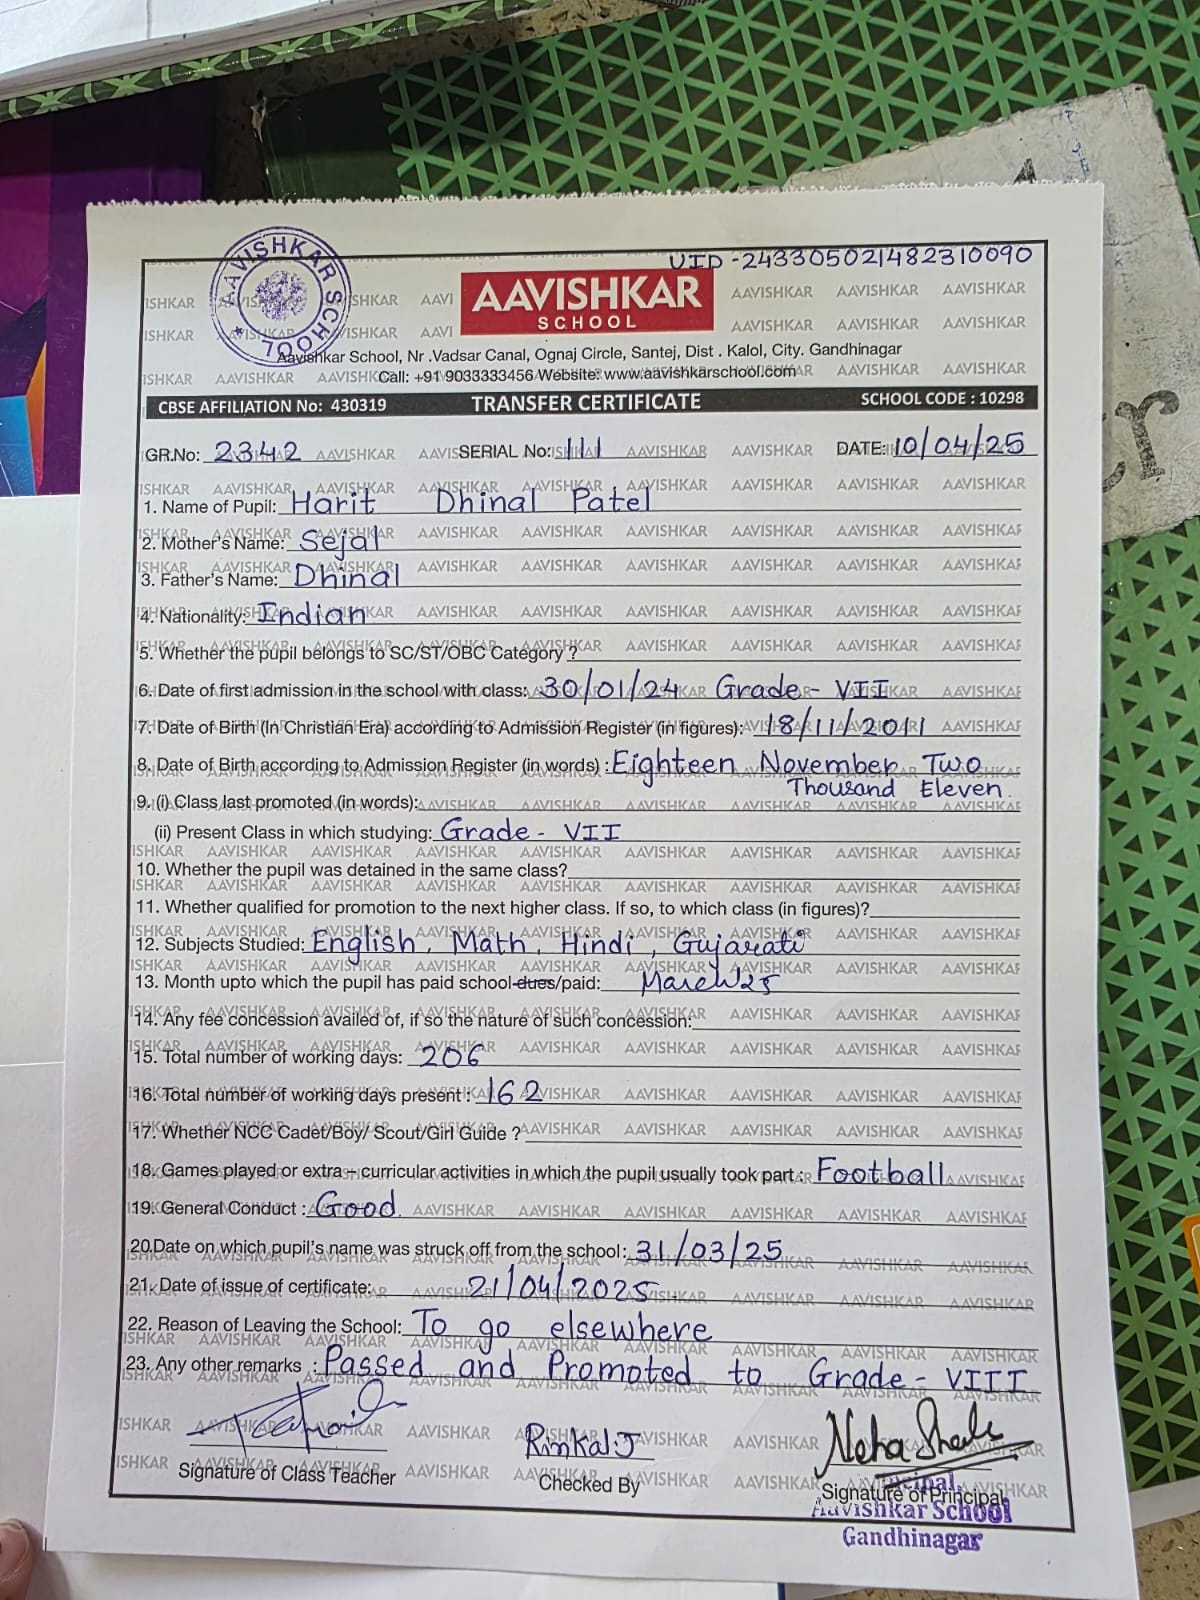 UID - 243305021482310090
AAVISHKAR SCHOOL
AAVISHKAR
SCHOOL
Aavishkar School, Nr .Vadsar Canal, Ognaj Circle, Santej, Dist . Kalol, City. Gandhinagar
Call: +91 9033333456 Website: www.aavishkarschool.com
CBSE AFFILIATION No: 430319 TRANSFER CERTIFICATE SCHOOL CODE : 10298
GR.No: 2342 SERIAL No: 111 DATE: 10/04/25
1. Name of Pupil: Harit Dhinal Patel
2. Mother's Name: Sejal
3. Father's Name: Dhinal
4. Nationality: Indian
5. Whether the pupil belongs to SC/ST/OBC Category ?
6. Date of first admission in the school with class: 30/01/24 Grade - VII
7. Date of Birth (In Christian Era) according to Admission Register (in figures): 18/11/2011
8. Date of Birth according to Admission Register (in words) : Eighteen November Two
Thousand Eleven.
9. (i) Class last promoted (in words):
(ii) Present Class in which studying: Grade - VII
10. Whether the pupil was detained in the same class?
11. Whether qualified for promotion to the next higher class. If so, to which class (in figures)?
12. Subjects Studied: English, Math, Hindi, Gujarati
13. Month upto which the pupil has paid school dues/paid: March'25
14. Any fee concession availed of, if so the nature of such concession:
15. Total number of working days: 206
16. Total number of working days present : 162
17. Whether NCC Cadet/Boy/ Scout/Girl Guide ?
18. Games played or extra – curricular activities in which the pupil usually took part : Football
19. General Conduct : Good.
20.Date on which pupil's name was struck off from the school: 31/03/25
21. Date of issue of certificate: 21/04/2025
22. Reason of Leaving the School: To go elsewhere
23. Any other remarks : Passed and Promoted to Grade - VIII
Rinkal.J
Signature of Class Teacher Checked By Signature of Principal
Principal
Aavishkar School
Gandhinagar